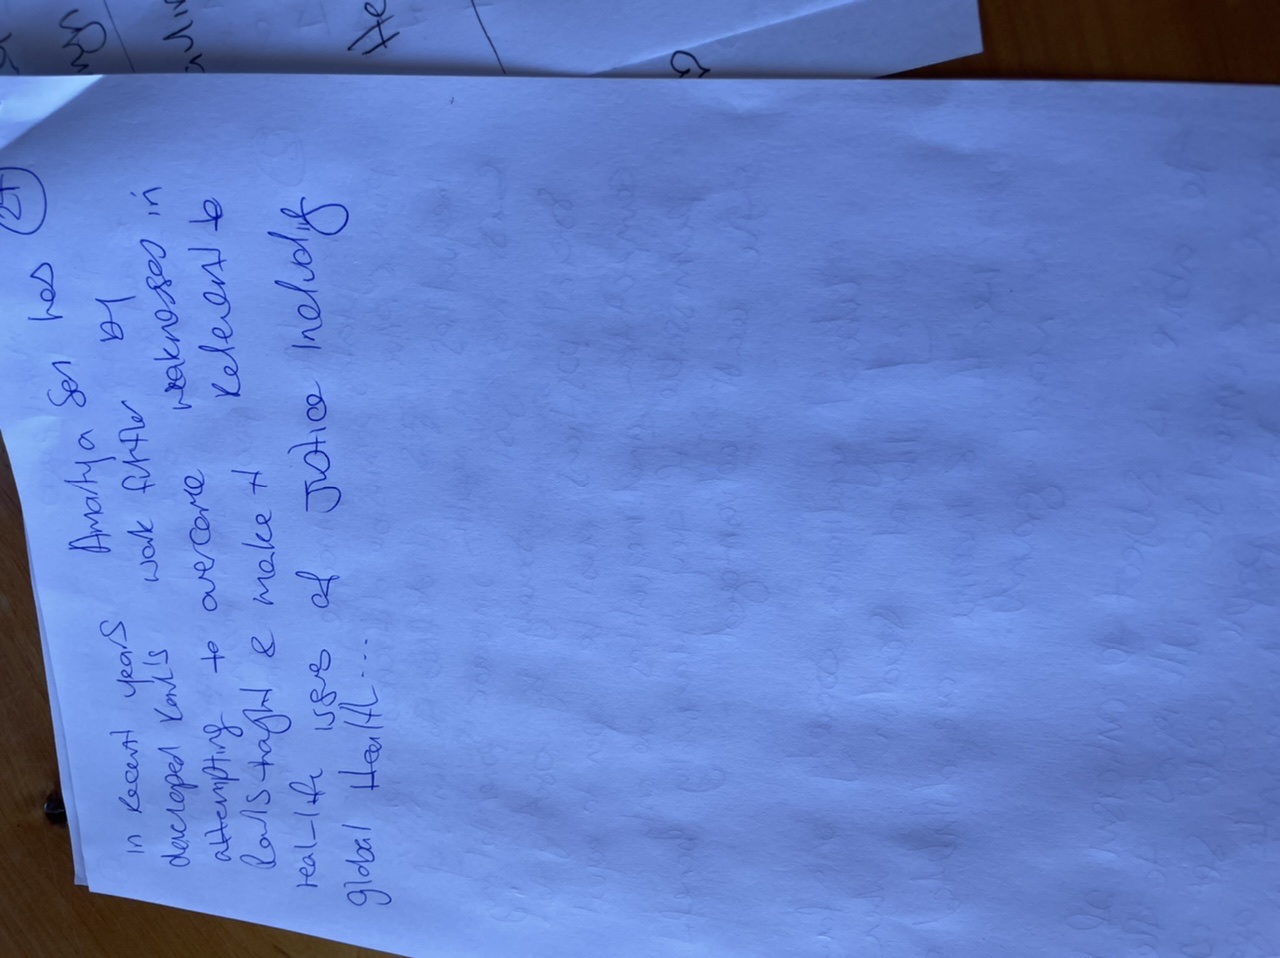 24
in Recent years Amartya Sen has
developed Rawls work further by
attempting to overcome weaknesses in
Rawls thought & make it Relevant to
real-life issues of Justice Including
global Health...
He